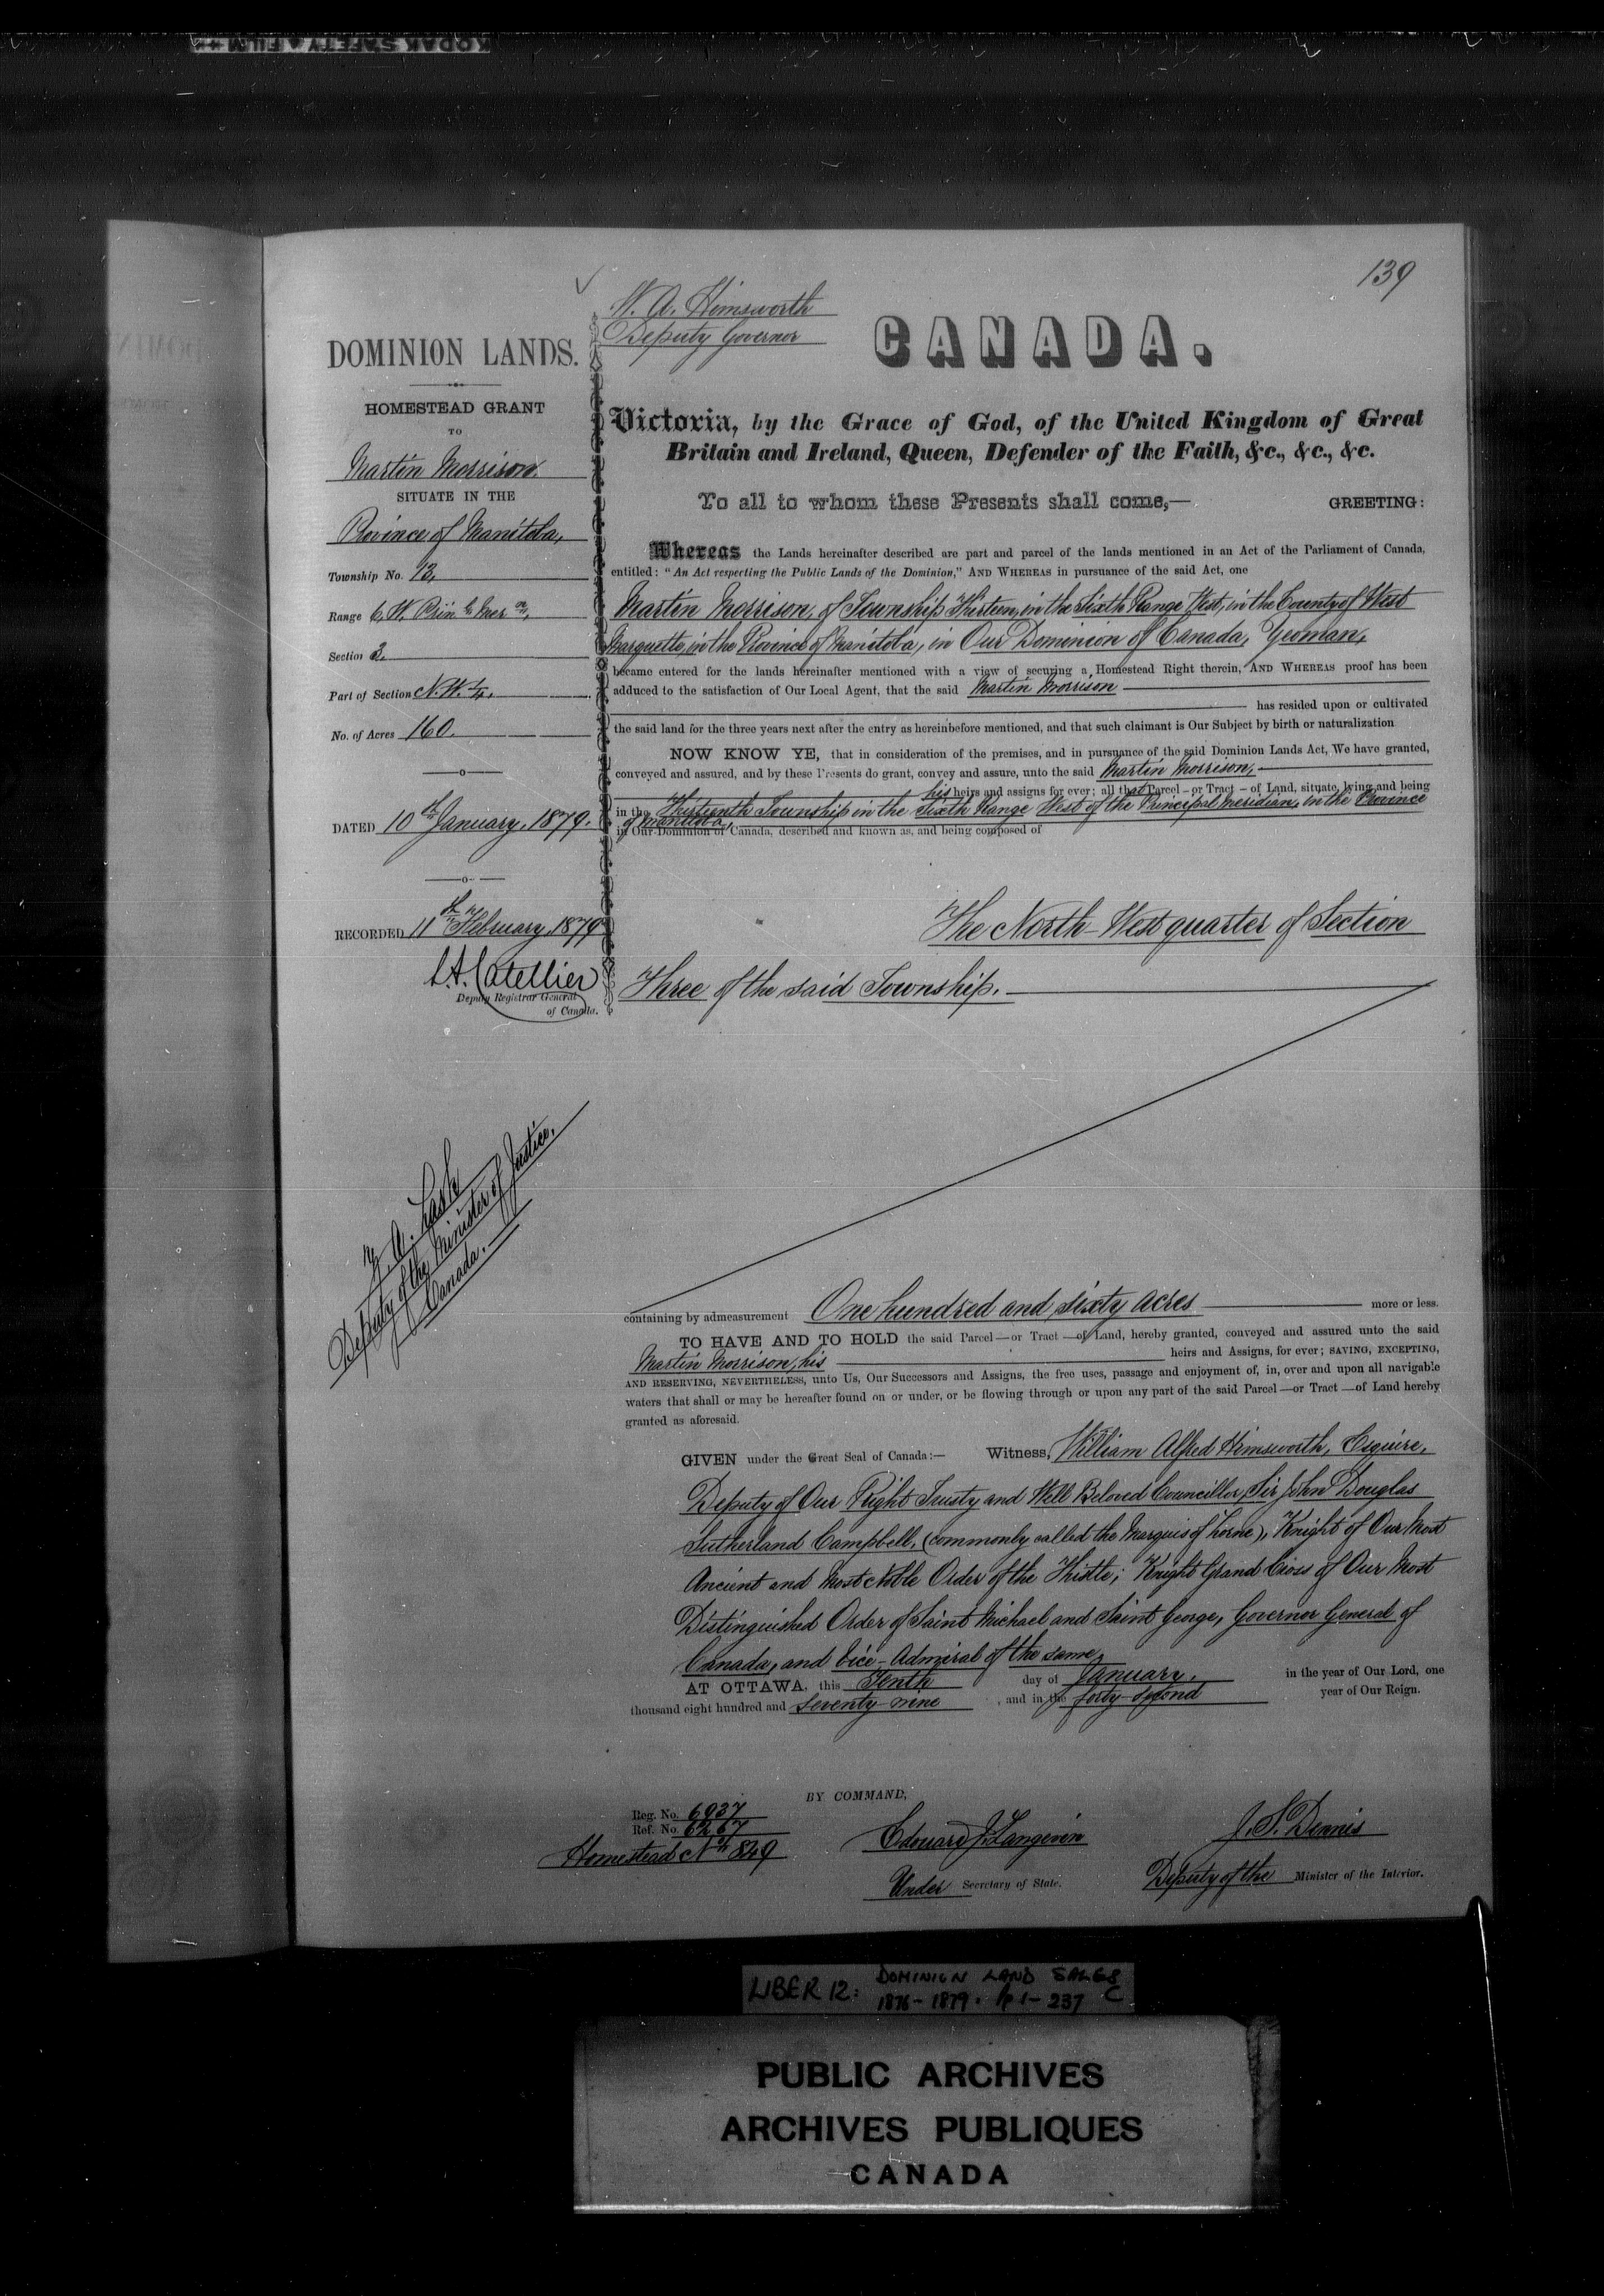 KODAK SAFETY FILM
139
W. A. Himsworth
Deputy Governor
CANADA.
DOMINION LANDS.
HOMESTEAD GRANT
TO
Martin Morrison
SITUATE IN THE
Province of Manitoba,
Township No. 13,
Range 6, W. Prin l Mer n,
Section 3.
Part of Section N. W. 1/4.
No. of Acres 160.
DATED 10th January, 1879.
RECORDED 11th February, 1879
L.A. Catellier
Deputy Registrar General
of Canada.
Z. A. Lash
Deputy of the Minister of Justice,
Canada.
Victoria, by the Grace of God, of the United Kingdom of Great
Britain and Ireland, Queen, Defender of the Faith, &c., &c., &c.
To all to whom these Presents shall come,— GREETING:
Whereas the Lands hereinafter described are part and parcel of the lands mentioned in an Act of the Parliament of Canada,
entitled: "An Act respecting the Public Lands of the Dominion," AND WHEREAS in pursuance of the said Act, one
Martin Morrison, of Township Thirteen, in the Sixth Range West, in the County of West
Marquette, in the Province of Manitoba, in Our Dominion of Canada, Yeoman,
became entered for the lands hereinafter mentioned with a view of securing a Homestead Right therein, AND WHEREAS proof has been
adduced to the satisfaction of Our Local Agent, that the said Martin Morrison
has resided upon or cultivated
the said land for the three years next after the entry as hereinbefore mentioned, and that such claimant is Our Subject by birth or naturalization
NOW KNOW YE, that in consideration of the premises, and in pursuance of the said Dominion Lands Act, We have granted,
conveyed and assured, and by these Presents do grant, convey and assure, unto the said Martin Morrison,
his heirs and assigns for ever; all that Parcel – or Tract – of Land, situate, lying and being
in the Thirteenth Township in the Sixth Range West of the Principal Meridian, in the Province
of Manitoba,
in Our Dominion of Canada, described and known as, and being composed of
The North-West quarter of Section
Three of the said Township.
containing by admeasurement One hundred and sixty acres more or less.
TO HAVE AND TO HOLD the said Parcel—or Tract—of Land, hereby granted, conveyed and assured unto the said
Martin Morrison, his heirs and Assigns, for ever; SAVING, EXCEPTING,
AND RESERVING, NEVERTHELESS, unto Us, Our Successors and Assigns, the free uses, passage and enjoyment of, in, over and upon all navigable
waters that shall or may be hereafter found on or under, or be flowing through or upon any part of the said Parcel—or Tract—of Land hereby
granted as aforesaid.
GIVEN under the Great Seal of Canada:— Witness, William Alfred Himsworth, Esquire,
Deputy of Our Right Trusty and Well Beloved Councillor, Sir John Douglas
Sutherland Campbell, (commonly called the Marquis of Lorne), Knight of Our Most
Ancient and Most Noble Order of the Thistle; Knight Grand Cross of Our Most
Distinguished Order of Saint Michael and Saint George, Governor General of
Canada, and Vice-Admiral of the same,
AT OTTAWA, this Tenth day of January, in the year of Our Lord, one
thousand eight hundred and seventy nine, and in the forty second year of Our Reign.
BY COMMAND,
Reg. No. 6937
Ref. No. 6267
Homestead No. 849
Edouard J. Langevin
Under Secretary of State.
J. S. Dennis
Deputy of the Minister of the Interior.
LIBER 12: DOMINION LAND SALES
1876-1879. pp 1-237 C
PUBLIC ARCHIVES
ARCHIVES PUBLIQUES
CANADA